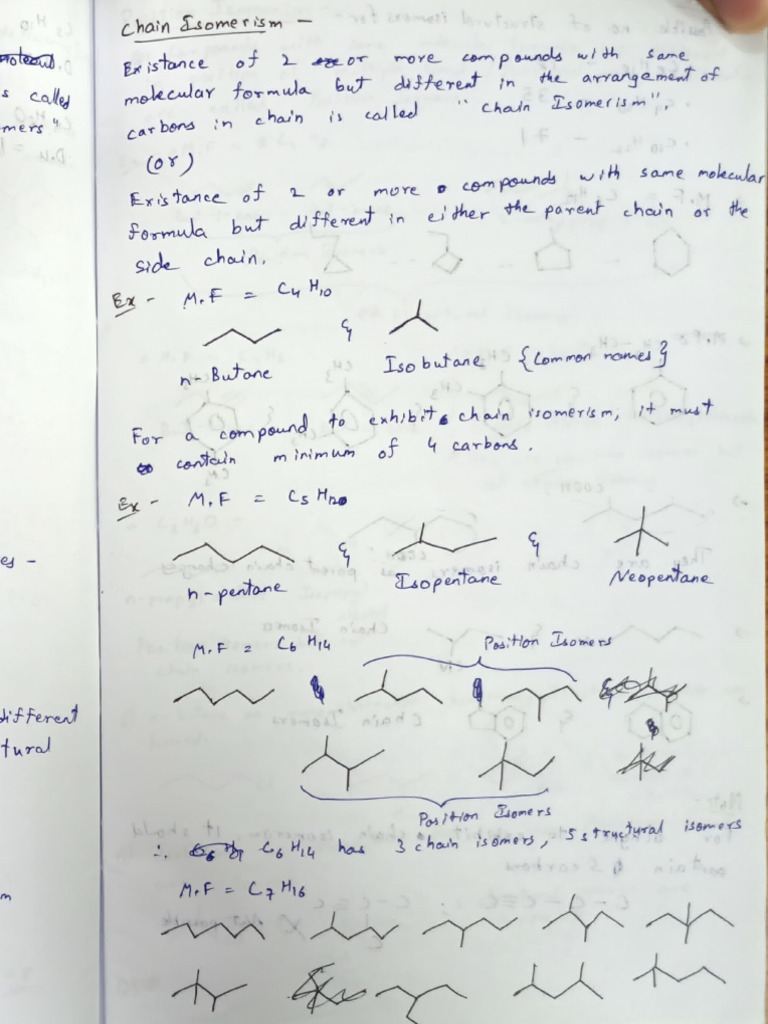 Chain Isomerism -
Existance of 2 or more compounds with same
molecular formula but different in the arrangement of
carbons in chain is called "Chain Isomerism".
(or)
Existance of 2 or more compounds with same molecular
formula but different in either the parent chain or the
side chain.
Ex - M.F = C4 H10
&
n-Butane Isobutane {Common names}
For a compound to exhibit chain isomerism, it must
contain minimum of 4 carbons.
Ex - M.F = C5 H12
& &
n-pentane Isopentane Neopentane
M.F = C6 H14 Position Isomers
Position Isomers
∴ C6 H14 has 3 chain isomers, 5 structural isomers
M.F = C7 H16
s called
mers"
es -
different
tural
m